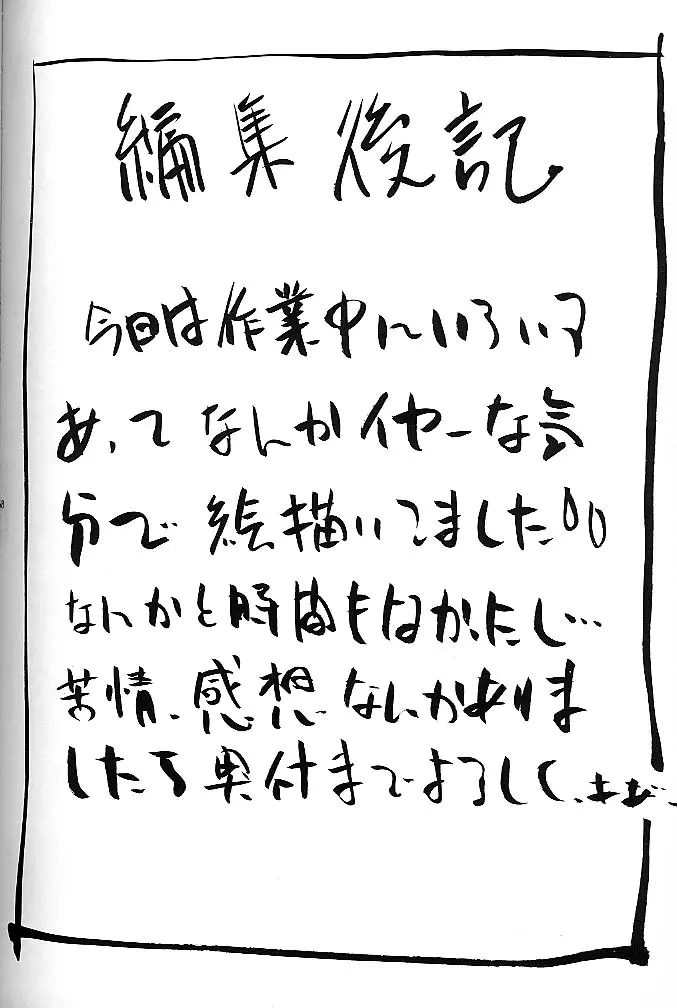 編集後記
今回は作業中にいろいろ
あってなんかイヤーな気
分で絵描いてました00
なんかと時間もなかたし…
苦情、感想なんかありま
したら奥付までよろしく、